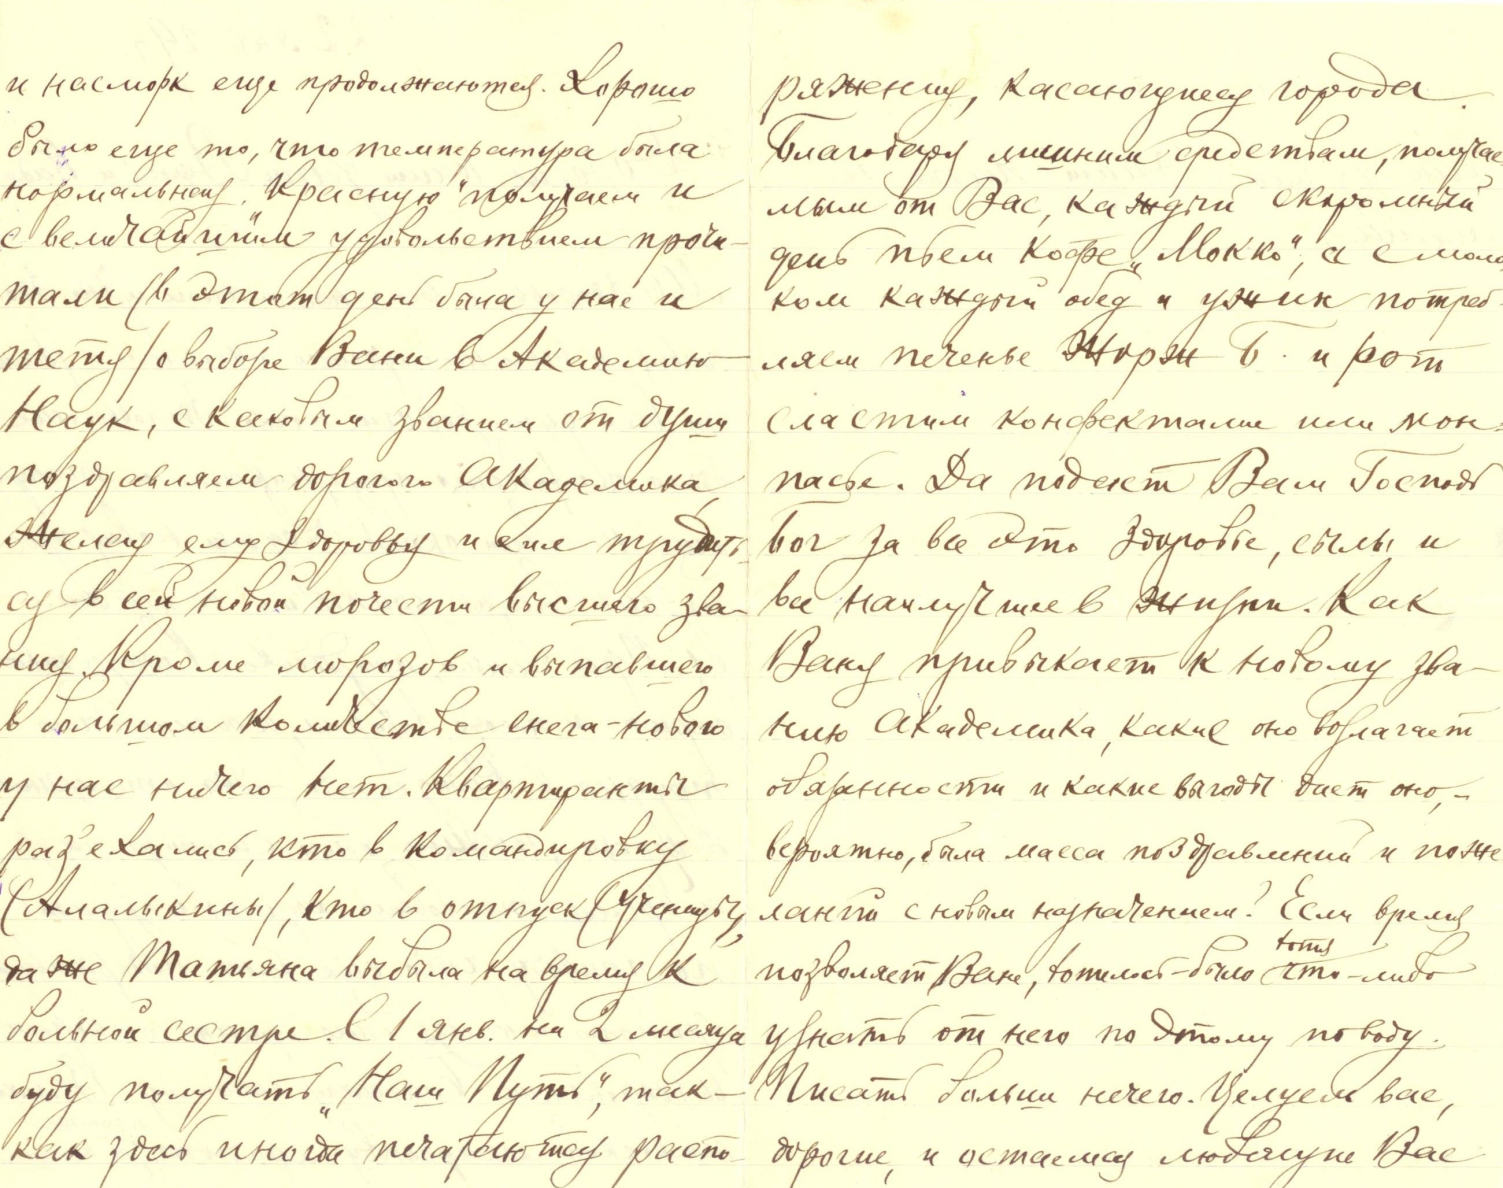 и насморк еще продолжаются. Хорошо
было еще то, что температура была
нормальная. Красную" получаем и
с величайшим удовольствием прочи-
тали (в этот день была у нас и
тетя) о выборе Вани в Академию
Наук, с каковым званием от души
поздравляем дорогого Академика,
желая ему здоровья и сил трудить-
ся в сей новой почести высшего зва-
ния. Кроме морозов и выпавшего
в большом количестве снега - нового
у нас ничего нет. Квартиранты
раз'ехались, кто в командировку
(Алалыкины), кто в отпуск (ученицы),
даже Татьяна выбыла на время к
больной сестре. С 1 янв. на 2 месяца
буду получать „Наш Путь", так-
как здесь иногда печатаются распо-
ряжения, касающиеся города.
Благодаря лишним средствам, получае-
мым от Вас, каждый скромный
день пьем кофе „Мокко", а с моло
ком каждый обед и ужин потреб-
ляем печенье Жорж Б. и рот
сластим конфектами или мон=
пасье. Да подаст Вам Господь
Бог за все это здоровье, силы и
все наилучшее в жизни. Как
Ваня привыкает к новому зва-
нию Академика, какие оно возлагает
обязанности и какие выгоды дает оно, -
вероятно, была масса поздравлений и поже
ланий с новым назначением? Если время
позволяет Ване, хотелось-было хотя что-либо
узнать от него по этому поводу.
Писать больше нечего. Целуем вас,
дорогие, и остаемся любящие Вас